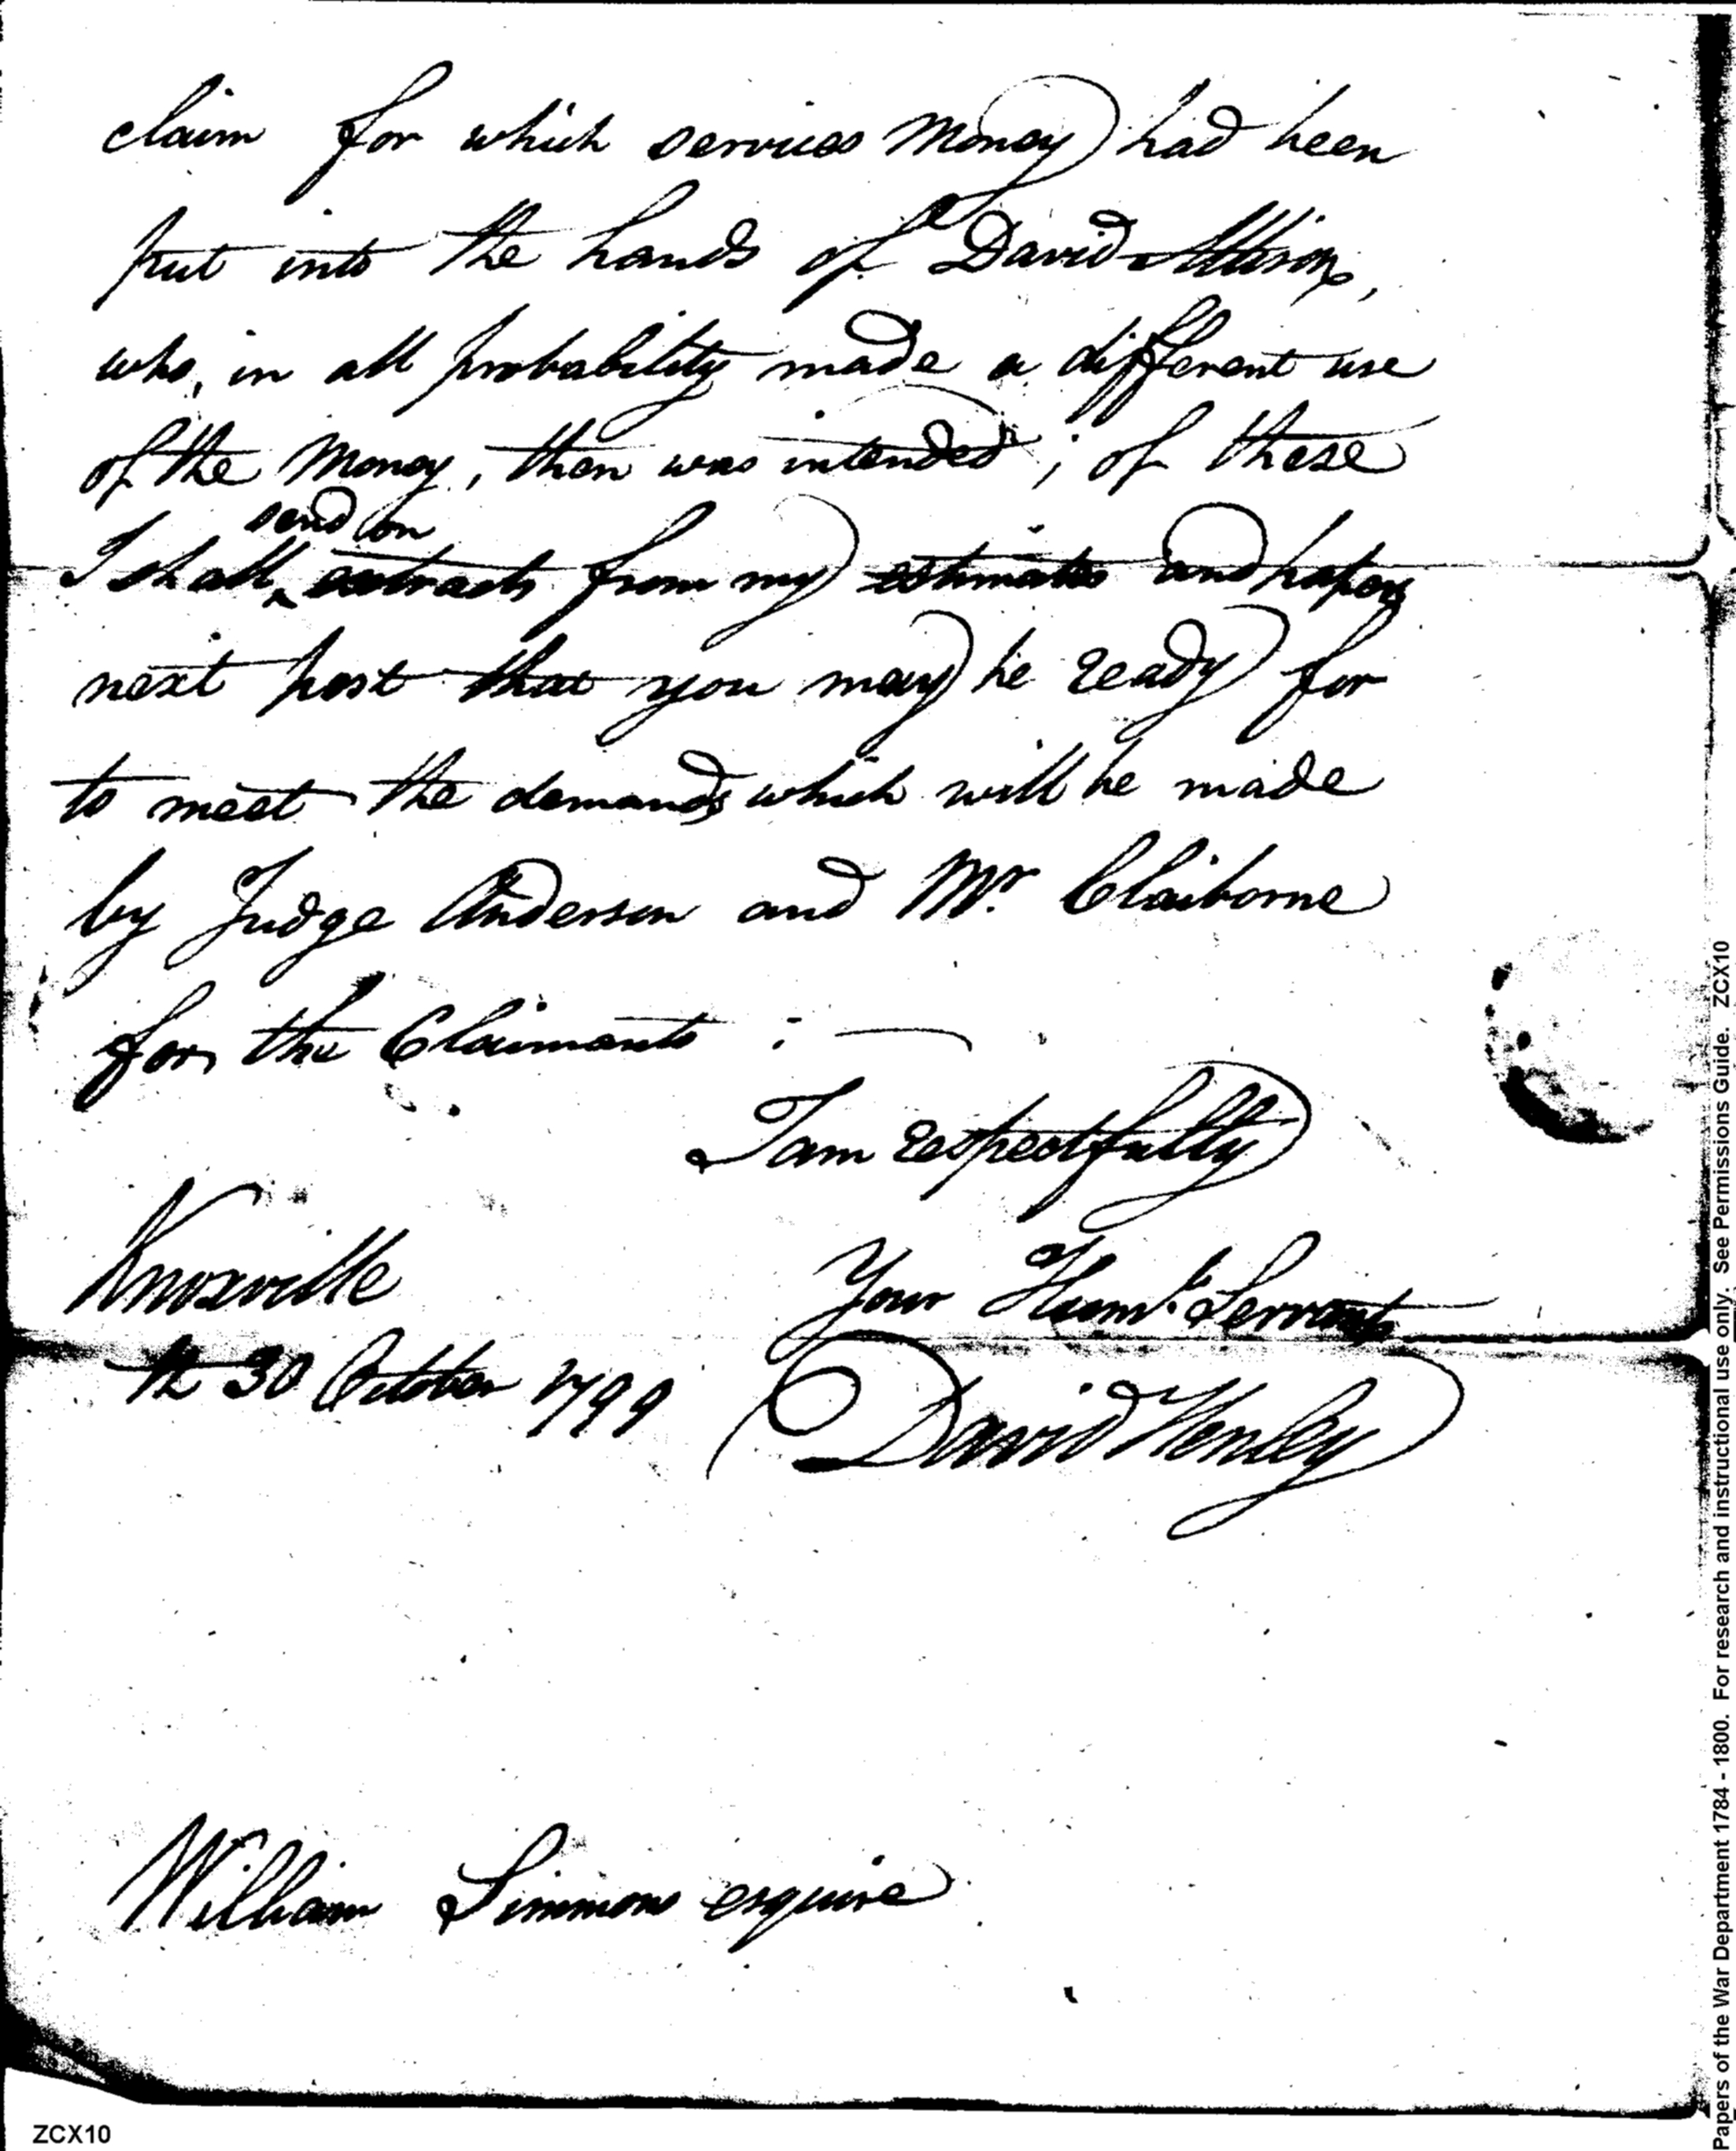 claim for which services money had been
put into the hands of David Allison,
who, in all probability made a different use
of the money, then was intended; of these
send on
I shall ^ extracts from my estimates and papers
next post that you may be ready for
to meet the demands which will be made
by Judge Anderson and Mr. Claiborne
for the Claimants : —
I am respectfully
Knoxville
Your Humb. Servant
the 30 October 1799
David Henley
William Simmons esquire
ZCX10
Papers of the War Department 1784 - 1800. For research and instructional use only. See Permissions Guide. ZCX10